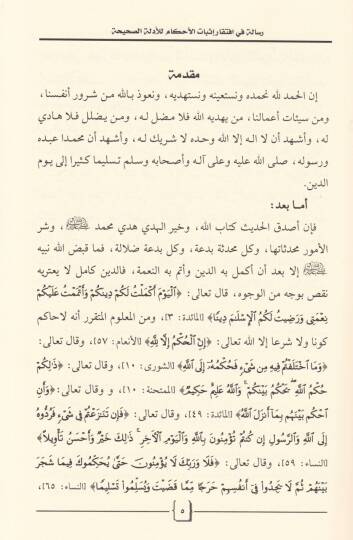 رسالة في افتقار إثبات الأحكام للأدلة الصحيحة
مقدمة
إن الحمد لله نحمده ونستعينه ونستهديه، ونعوذ بالله من شرور أنفسنا،
ومن سيئات أعمالنا، من يهديه الله فلا مضل له، ومن يضلل فلا هادي
له، وأشهد أن لا اله إلا الله وحده لا شريك له، وأشهد أن محمدا عبده
ورسوله، صلى الله عليه وعلى آله وأصحابه وسلم تسليما كثيرا إلى يوم
الدين.
أما بعد:
فإن أصدق الحديث كتاب الله، وخير الهدي هدي محمد ﷺ، وشر
الأمور محدثاتها، وكل محدثة بدعة، وكل بدعة ضلالة، فما قبض الله نبيه
ﷺ إلا بعد أن أكمل به الدين وأتم به النعمة، فالدين كامل لا يعتريه
نقص بوجه من الوجوه، قال تعالى: ﴿الْيَوْمَ أَكْمَلْتُ لَكُمْ دِينَكُمْ وَأَتْمَمْتُ عَلَيْكُمْ
نِعْمَتِي وَرَضِيتُ لَكُمُ الْإِسْلَامَ دِينًا﴾ [المائدة: ٣]، ومن المعلوم المتقرر أنه لا حاكم
كونا ولا شرعا إلا الله تعالى: ﴿إِنِ الْحُكْمُ إِلَّا لِلَّهِ﴾ [الأنعام: ٥٧]، وقال تعالى:
﴿وَمَا اخْتَلَفْتُمْ فِيهِ مِن شَيْءٍ فَحُكْمُهُ إِلَى اللَّهِ﴾ [الشورى: ١٠]، وقال تعالى: ﴿ذَلِكُمْ
حُكْمُ اللَّهِ يَحْكُمُ بَيْنَكُمْ وَاللَّهُ عَلِيمٌ حَكِيمٌ﴾ [الممتحنة: ١٠]، و وقال تعالى: ﴿وَأَنِ
احْكُم بَيْنَهُم بِمَا أَنزَلَ اللَّهُ﴾ [المائدة: ٤٩]، وقال تعالى: ﴿فَإِن تَنَازَعْتُمْ فِي شَيْءٍ فَرُدُّوهُ
إِلَى اللَّهِ وَالرَّسُولِ إِن كُنتُمْ تُؤْمِنُونَ بِاللَّهِ وَالْيَوْمِ الْآخِرِ ذَلِكَ خَيْرٌ وَأَحْسَنُ تَأْوِيلًا﴾
[النساء: ٥٩]، وقال تعالى: ﴿فَلَا وَرَبِّكَ لَا يُؤْمِنُونَ حَتَّى يُحَكِّمُوكَ فِيمَا شَجَرَ
بَيْنَهُمْ ثُمَّ لَا يَجِدُوا فِي أَنفُسِهِمْ حَرَجًا مِّمَّا قَضَيْتَ وَيُسَلِّمُوا تَسْلِيمًا﴾ [النساء: ٦٥]،
٥